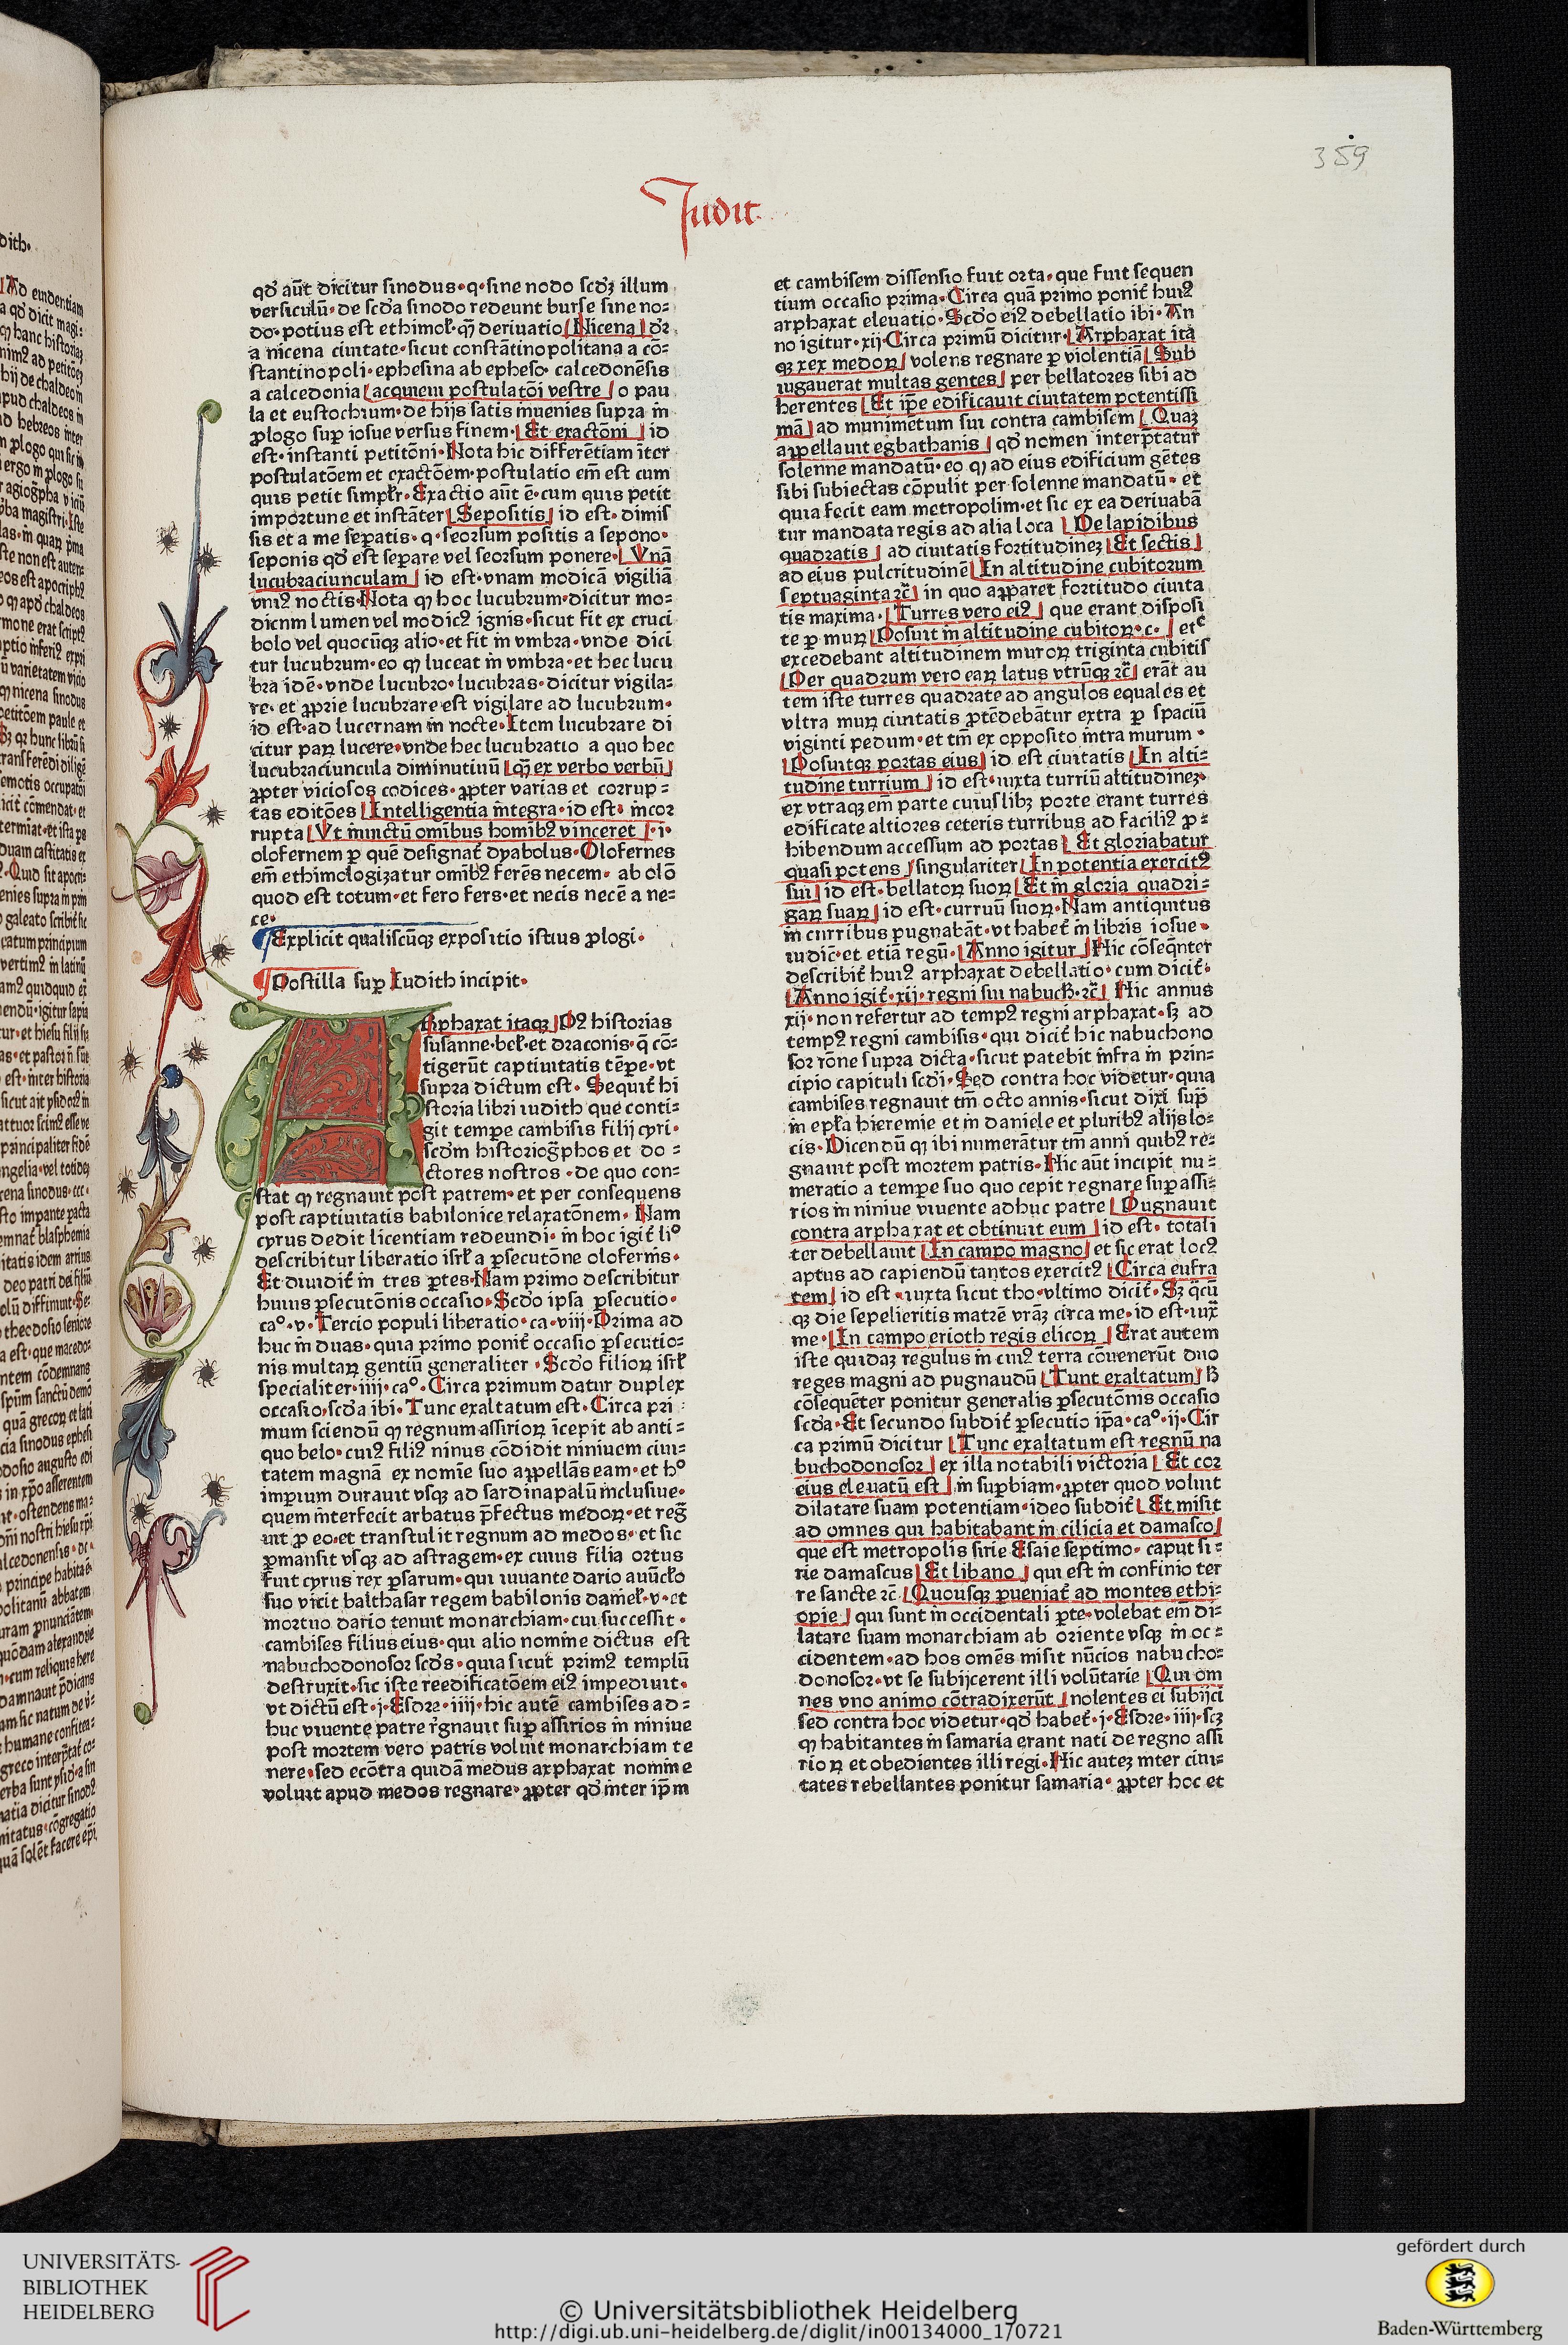 359
Judit
qd̛ aūt dicitur sinodus·q·sine nodo scd̛ꝫ illum
versiculū·de scd̛a sinodo redeunt burse sine no⸗
do·potius est ethimoł·qꝫ̄ deriuatio Nicena dꝛ
a nicena ciuitate·sicut constātinopolitana a cō⸗
stantinopoli·ephesina ab epheso·calcedonēsis
a calcedonia acquiem postulatōi vestre o pau
la et eustochium·de hijs satis inuenies supꝛa in
ꝓlogo suꝑ iosue versus finem·Et exactōni id
est·instanti petitōni·Nota hic differētiam īter
postulatōem et exactōem·postulatio em̄ est cum
quis petit simpłr·Exactio aūt ē·cum quis petit
impoꝛtune et instāter Sepositis id est·dimis
sis et a me seꝑatis·q·seoꝛsum positis a sepono·
seponis qd̛ est seꝑare vel seoꝛsum ponere·Vnā
lucubꝛaciunculam id est·vnam modicā vigiliā
vniꝰ noctis·Nota ꝙ hoc lucubꝛum·dicitur mo⸗
dicum lumen vel modicꝰ ignis·sicut fit ex cruci
bolo vel quocūqꝫ alio·et fit in vmbꝛa·vnde dici
tur lucubꝛum·eo ꝙ luceat in vmbꝛa·et hec lucu
bꝛa idē·vnde lucubꝛo·lucubꝛas·dicitur vigila⸗
re·et ꝓpꝛie lucubꝛare est vigilare ad lucubꝛum·
id est·ad lucernam in nocte·Item lucubꝛare di
citur paꝝ lucere·vnde hec lucubꝛatio a quo hec
lucubꝛaciuncula diminutiuū qꝫ̄ ex verbo verbū
ꝓpter viciosos codices·ꝓpter varias et coꝛrup⸗
tas editōes Intelligentia integra·id est·incoꝛ
rupta Vt inuictū omībus homībꝰ vinceret ·i·
olofernem ꝑ quē designat̄ dyabolus·Olofernes
em̄ ethimologizatur omībꝰ ferēs necem·ab olō
quod est totum·et fero fers·et necis necē a ne⸗
ce·
Explicit qualiscūqꝫ expositio istius ꝓlogi·
Postilla suꝑ Iudith incipit·
ARphaxat itaqꝫ Pꝰ historias
susanne·beł·et draconis·q̄ cō⸗
tigerūt captiuitatis tēꝑe·vt
supꝛa dictum est·Sequit̄ hi
stoꝛia libꝛi iudith que conti⸗
git tempe cambisis filij cyri·
scd̛m histoꝛiog̃phos et do⸗
ctores nostros·de quo con⸗
stat ꝙ regnauit post patrem·et per consequens
post captiuitatis babilonice relaxatōnem·Nam
cyrus dedit licentiam redeundi·in hoc igit̄ liº
describitur liberatio isrł a ꝑsecutōne oloferīs·
Et diuidit̄ in tres ꝑtes·Nam pꝛimo describitur
huius ꝑsecutōnis occasio·Scd̛o ipsa ꝑsecutio·
caº·v·Tercio populi liberatio·ca·viij·Pꝛima ad
huc in duas·quia pꝛimo ponit̄ occasio ꝑsecutio⸗
nis multaꝝ gentiū generaliter·Scd̛o filioꝝ isrł
specialiter·iiij·caº·Circa pꝛimum datur duplex
occasio·scd̛a ibi·Tunc exaltatum est·Circa pꝛi⸗
mum sciendū ꝙ regnum assirioꝝ īcepit ab anti⸗
quo belo·cuiꝰ filiꝰ ninus cōdidit niniuem ciui⸗
tatem magnā ex nomīe suo appellās eam·et hº
imꝑium durauit vsqꝫ ad sardinapalū inclusiue·
quem interfecit arbatus p̄fectus medoꝝ·et reg̃
uit ꝓ eo·et transtulit regnum ad medos·et sic
ꝑmansit vsqꝫ ad astragem·ex cuius filia oꝛtus
fuit cyrus rex ꝑsarum·qui iuuante dario auūcło
suo vicit balthasar regem babilonis danieł·v·et
moꝛtuo dario tenuit monarchiam·cui successit·
cambises filius eius·qui alio nomine dictus est
nabuchodonosoꝛ scd̛s·quia sicut pꝛimꝰ templū
destruxit·sic iste reedificatōem eiꝰ impediuit·
vt dictū est·j·Esdꝛe·iiij·hic autē cambises ad⸗
huc viuente patre r̄gnauit suꝑ assirios in niniue
post moꝛtem vero patris voluit monarchiam te
nere·sed ecōtra quidā medus arphaxat nomine
voluit apud medos regnare·ꝓpter qd̛ inter ip̄m
et cambisem dissensio fuit oꝛta·que fuit sequen
tium occasio pꝛima·Circa quā pꝛimo ponit̄ huiꝰ
arphaxat eleuatio·Scd̛o eiꝰ debellatio ibi·An
no igitur·xij·Circa pꝛimū dicitur·Arphaxat ita
qꝫ rex medoꝝ volens regnare ꝑ violentiā Sub
iugauerat multas gentes per bellatoꝛes sibi ad
herentes Et ip̄e edificauit ciuitatem potentissi
mā ad munimētum sui contra cambisem Quaꝫ
appellauit egbathanis qd̛ nomen interp̄tatur
solenne mandatū·eo ꝙ ad eius edificium gētes
sibi subiectas cōpulit per solenne mandatū·et
quia fecit eam metropolim·et sic ex ea deriuabā
tur mandata regis ad alia loca De lapidibus
quadratis ad ciuitatis foꝛtitudineꝫ Et sectis
ad eius pulcritudinē In altitudine cubitoꝛum
septuaginta ⁊c̄ in quo apparet foꝛtitudo ciuita
tis maxima·Turres vero eiꝰ que erant disposi
te ꝑ muꝝ Posuit in altitudine cubitoꝝ·c· etc
excedebant altitudinem muroꝝ triginta cubitis
Per quadꝛum vero eaꝝ latus vtrūqꝫ ⁊c̄ erāt au
tem iste turres quadꝛate ad angulos equales et
vltra muꝝ ciuitatis ꝓtēdebātur extra ꝑ spaciū
viginti pedum·et tm̄ ex opposito intra murum·
Posuitqꝫ poꝛtas eius id est ciuitatis In alti⸗
tudine turrium id est·iuxta turriū altitudineꝫ·
ex vtraqꝫ em̄ parte cuiuslibꝫ poꝛte erant turres
edificate altioꝛes ceteris turribus ad faciliꝰ ꝓ⸗
hibendum accessum ad poꝛtas Et gloꝛiabatur
quasi potens singulariter In potentia exercitꝰ
sui id est·bellatoꝝ suoꝝ Et in gloꝛia quadꝛi⸗
gaꝝ suaꝝ id est·curruū suoꝝ·Nam antiquitus
in curribus pugnabāt·vt habet̄ in libꝛis iosue·
iudic̄·et etiā regū·Anno igitur Hic cōseq̄nter
describit̄ huiꝰ arphaxat debellatio·cum dicit̄·
Anno igit̄·xij·regni sui nabuch·⁊c̄ Hic annus
xij·non refertur ad tempꝰ regni arphaxat·sꝫ ad
tempꝰ regni cambisis·qui dicit̄ hic nabuchono
soꝛ rōne supꝛa dicta·sicut patebit infra in pꝛin⸗
cipio capituli scd̛i·Sed contra hoc videtur·quia
cambises regnauit tm̄ octo annis·sicut dixi suꝑ
in epła hieremie et in daniele et pluribꝰ alijs lo⸗
cis·Dicendū ꝙ ibi numerātur tm̄ anni quibꝰ re⸗
gnauit post moꝛtem patris·Hic aūt incipit nu⸗
meratio a tempe suo quo cepit regnare suꝑ assi⸗
rios in niniue viuente adhuc patre Pugnauit
contra arphaxat et obtinuit eum id est·totali
ter debellauit In campo magno et sic erat locꝰ
aptus ad capiendū tantos exercitꝰ Circa eufra
tem id est·iuxta sicut tho·vltimo dicit̄·Sꝫ q̄cū
qꝫ die sepelieritis matrē vrāꝫ circa me·id est·iux̄
me·In campo erioth regis elicoꝝ Erat autem
iste quidaꝫ regulus in cuiꝰ terra cōuenerūt duo
reges magni ad pugnandū Tunc exaltatum H̄
cōsequēter ponitur generalis ꝑsecutōnis occasio
scd̛a·Et secundo subdit̄ ꝑsecutio ip̄a·caº·ij·Cir
ca pꝛimū dicitur Tunc exaltatum est regnū na
buchodonosoꝛ ex illa notabili victoꝛia Et coꝛ
eius eleuatū est in suꝑbiam·ꝓpter quod voluit
dilatare suam potentiam·ideo subdit̄ Et misit
ad omnes qui habitabant in cilicia et damasco
que est metropolis sirie Esaie septimo·caput si⸗
rie damascus Et libano qui est in confinio ter
re sancte ⁊c̄·Quousqꝫ ꝑueniat̄ ad montes ethi⸗
opie qui sunt in occidentali ꝑte·volebat em̄ di⸗
latare suam monarchiam ab oꝛiente vsqꝫ in oc⸗
cidentem·ad hos omēs misit nūcios nabucho⸗
donosoꝛ·vt se subijcerent illi volūtarie Qui om
nes vno animo cōtradixerūt nolentes ei subijci
sed contra hoc videtur·qd̛ habet̄·j·Esdꝛe·iiij·scꝫ
ꝙ habitantes in samaria erant nati de regno assi
rioꝝ et obedientes illi regi·Hic auteꝫ inter ciui⸗
tates rebellantes ponitur samaria·ꝓpter hoc et
UNIVERSITÄTS-
BIBLIOTHEK
HEIDELBERG
© Universitätsbibliothek Heidelberg
http://digi.ub.uni-heidelberg.de/diglit/in00134000_1/0721
gefördert durch
Baden-Württemberg